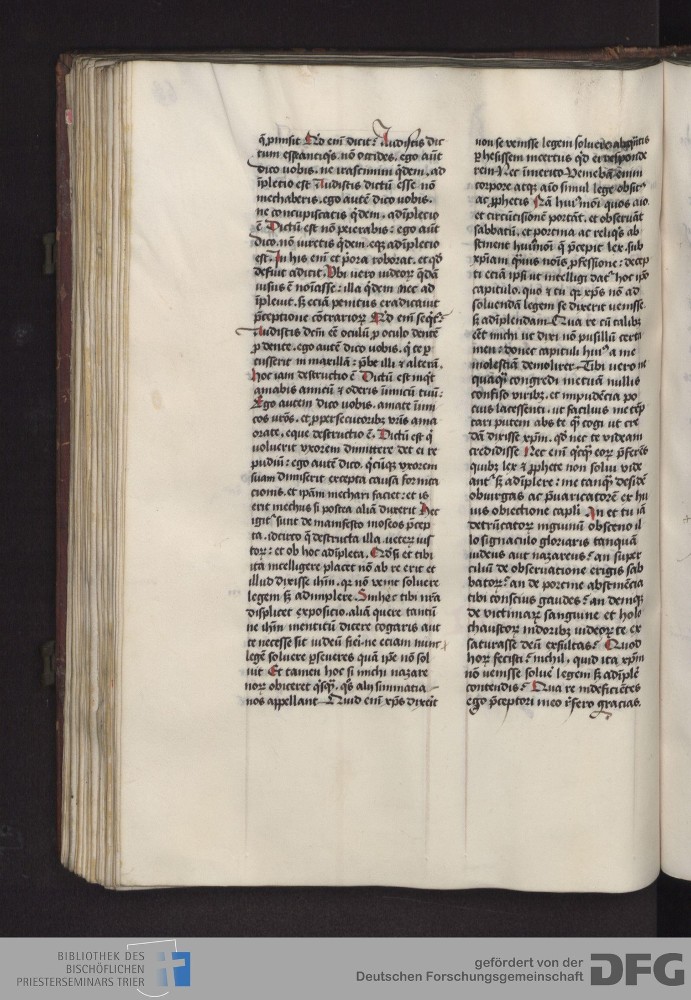 q̄ p̄misit Quid eni̅ dicit? Audistis dic
tum esse antiqˢ. nō occides. ego aūt
dico uobis. ne irascimini q̄dem. ad
īpletio est Audistis dictū esse nō
mechaberis. ego autē dico uobis.
ne concupiscatis q̄dem. adīpletio
ē Dictū est nō peierabis: ego aūt
dico. nō iuretis q̄dem. eq; adīpletio
est. In his eni̅ et p̄ora roborat. et qd̄
defuit adicit. Ubi uero uideor q̄dā
iusus ē noīasse: illa q̄dem nec ad
īpleuit. s; eciā penitus eradicauit
p̄ceptione cōtrarioꝝ Quid eni̅ seqt̄?
Audistis dcm̄ eē oculū ꝓ oculo dentē
ꝓ dente. ego autē dico uobis. q̄ te ꝑ
cusserit in maxillā: p̄be illi ⁊ alterā.
hoc iam destructio ē Dictū est inqt̄
amabis amicū ⁊ oderis inimicū tuū:
Ego autem dico uobis. amate inimi
cos ur̄os. et ꝑpersecutoribꝫ ur̄is ama
orate. eque destructio ē. Dictū est q̄
uoluerit vxorem dimittere det ei re
pudiū: ego autē dico. q̄cūqꝫ vxorem
suam dimiserit excepta causā fornica
cionis. et ip̄am mechari faciet: et is
erit mechus si postea aliā duxerit Hec
igitᵘ sunt de manifesto moseos p̄cep
ta. idcirco q̄ destructa illa. ueteꝝ ius
toꝝ: et ob hoc adīpleta. Quid si et tibi
ita intelligere placet nō ab re erit et
illud dixisse ihm̄. qꝛ nō venit soluere
legem s; adimplere. Sin hec tibi nr̄a
displicet expositio. aliā quere tantū
ne ihm̄ mentitū dicere cogaris aut
te necesse sit iudeū fiei. ne eciam nunc
legē soluere ꝑseueres quā ip̄e nō sol
uit Et tamen hoc si michi nazare
noꝝ obiceret qˢqꝫ. qˢ alij simmatia
nos appellant Quid eni̅ xp̄s dixerit
non se venisse legem soluere aliquātis
ꝑ hesissem incertus qd̄ ei responde
rem Nec inmerito Veniebā enim
corpore atqꝫ aīo simul lege obsitᵘ
ac ꝓphetis Nā huiᵘmōi quos aio.
et circūcisionē portāt. et obseruāt
sabbatū. et porcina ac reliqˢ ab
stinent huiᵘmōi q̄ p̄cepit lex. sub
xp̄iam q̄uis nois ꝓfessione: decep
ti eciā ip̄si ut intelligi datᵘ hoc ip̄o
capitulo. quo ⁊ tu qꝛ xp̄s nō ad
soluendā legem se dixerit uenisse.
s; adīplendam Qua re cū talibꝫ
eēt michi ut dixi nō pusillū certa
men: donec capituli huiᵘs a me
molestiam demolirer. Tibi uero ne
quaqꝫ congredi metuā nullis
confiso viribꝫ. et impudēcia po
cius lacessenti. ut facilius me tēp
tari putem abs te q̄ cogi ut cre
dā dixisse xp̄m. qd̄ nec te videam
credidisse Nec eni̅ qˢqꝫ eoꝝ p̄feres
quibꝫ lex ⁊ ꝓphete non solui vide
antᵘ s; adīplere: me tanqꝫ deside
obiurgas ac p̄uaricatorē ex hu
ius obiectione capl̄i An et tu iā
detrūcatoꝝ inguinū obsceno il
lo signaculo gloriaris tanquā
iudeus aut nazareus? an super
ciliū de obseruatione erigis sab
batoꝝ? an de porcine abstinēcia
tibi conscius gaudes? an deniqꝫ
de victimaꝝ sanguine et holo
chaustoꝝ nidoribꝫ uideoꝝ te ex
saturasse deū exsultas? Quod
hoꝝ fecisti? nichil. quid ita xp̄m
nō uenisse soluē legem s; adīplē
contendis? Qua re indeficiētes
ego p̄ceptori meo r̄fero gracias.
BIBLIOTHEK DES
BISCHÖFLICHEN
PRIESTERSEMINARS TRIER
gefördert von der
Deutschen Forschungsgemeinschaft
DFG